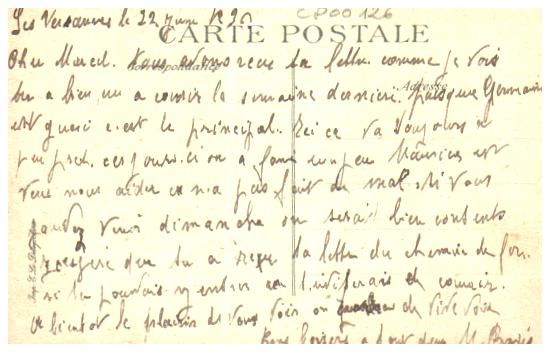 Les Versannes le 22 juin 1920
CP00 126
CARTE POSTALE
Correspondance
Adresse
Cher Marcel. Nous avons recu ta lettre comme je vois
tu a bien eu a courir la semaine derniere. puisque Germaine
est gueri c'est le principal. Ici ce va toujours a
peu pres. ces jours-ci on a fané un peu Maurice est
venu nous aider ca n'a pas fait de mal. si vous
pouvez venir dimanche on serait bien contents
J'espere que tu a reçu ta lettre du chemin de fer.
si tu pouvais y entrer ca t'eviterais de courir.
A bientot le plaisir de vous voir on de vive voix
Bons baisers a tous deux M.